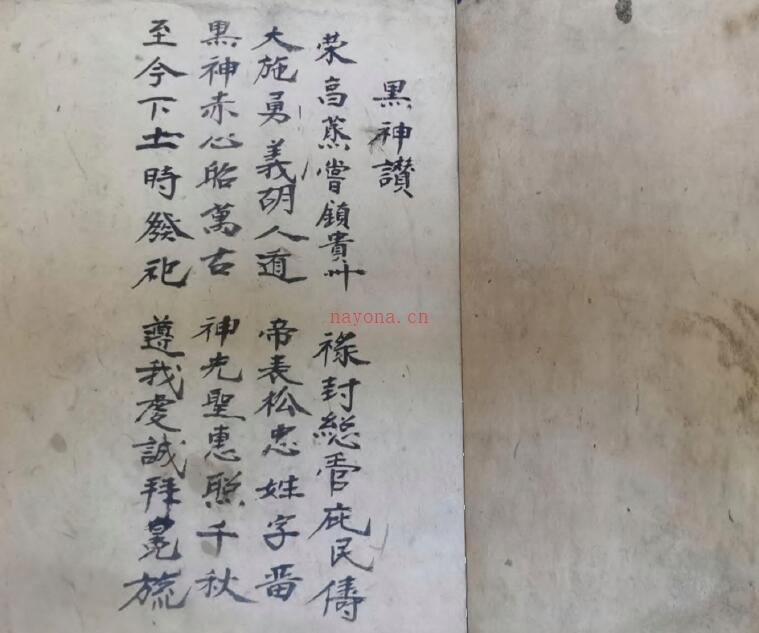 黑神讃
荣高蒸嘗鎮貴卅 祿封総管庇民儔
大施勇義明人道 帝表松忠姓字畱
黑神赤心昭萬古 神光聖惠照千秋
至今下土時發祀 遵我虔誠拜冕旒
nayona.cn